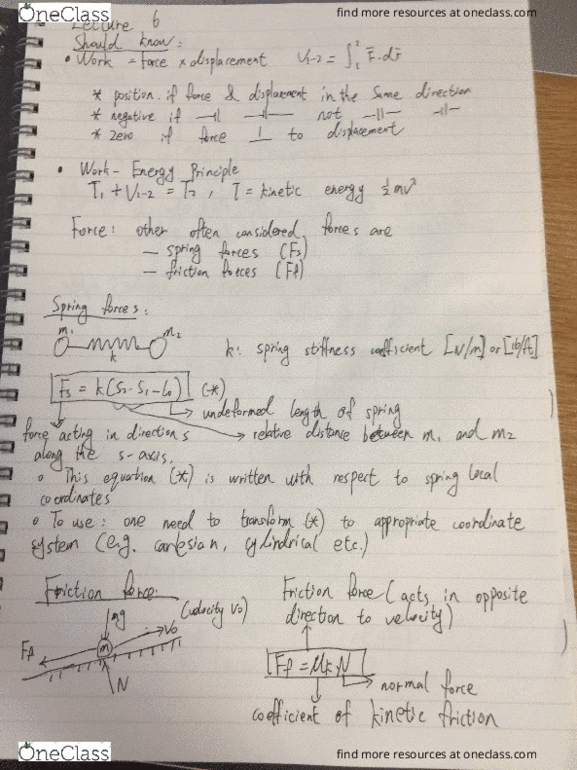 OneClass
find more resources at oneclass.com
Lecture 6
Should know:
• Work = force x displacement U1-2 = ∫₁² F̄·dr̄
* position if force & displacement in the same direction
* negative if —||— —||— not —||— —||—
* zero if force ⊥ to displacement
• Work - Energy Principle
T1 + U1-2 = T2 , T = kinetic energy ½mv²
Force: other often considered forces are
— spring forces (Fs)
— friction forces (Ff)
Spring forces:
m1 m2
k
k: spring stiffness coefficient [N/m] or [lb/ft]
Fs = k(S2 - S1 - L0) (*)
undeformed length of spring
force acting in directions
relative distance between m1 and m2
along the s-axis.
• This equation (*) is written with respect to spring local
coordinates
• To use: one need to transform (*) to appropriate coordinate
system (e.g. cartesian, cylindrical etc.)
Friction force:
mg
(velocity v0)
v0
Ff
m
N
Friction force (acts in opposite
direction to velocity)
Ff = μk N
normal force
coefficient of kinetic friction
OneClass
find more resources at oneclass.com